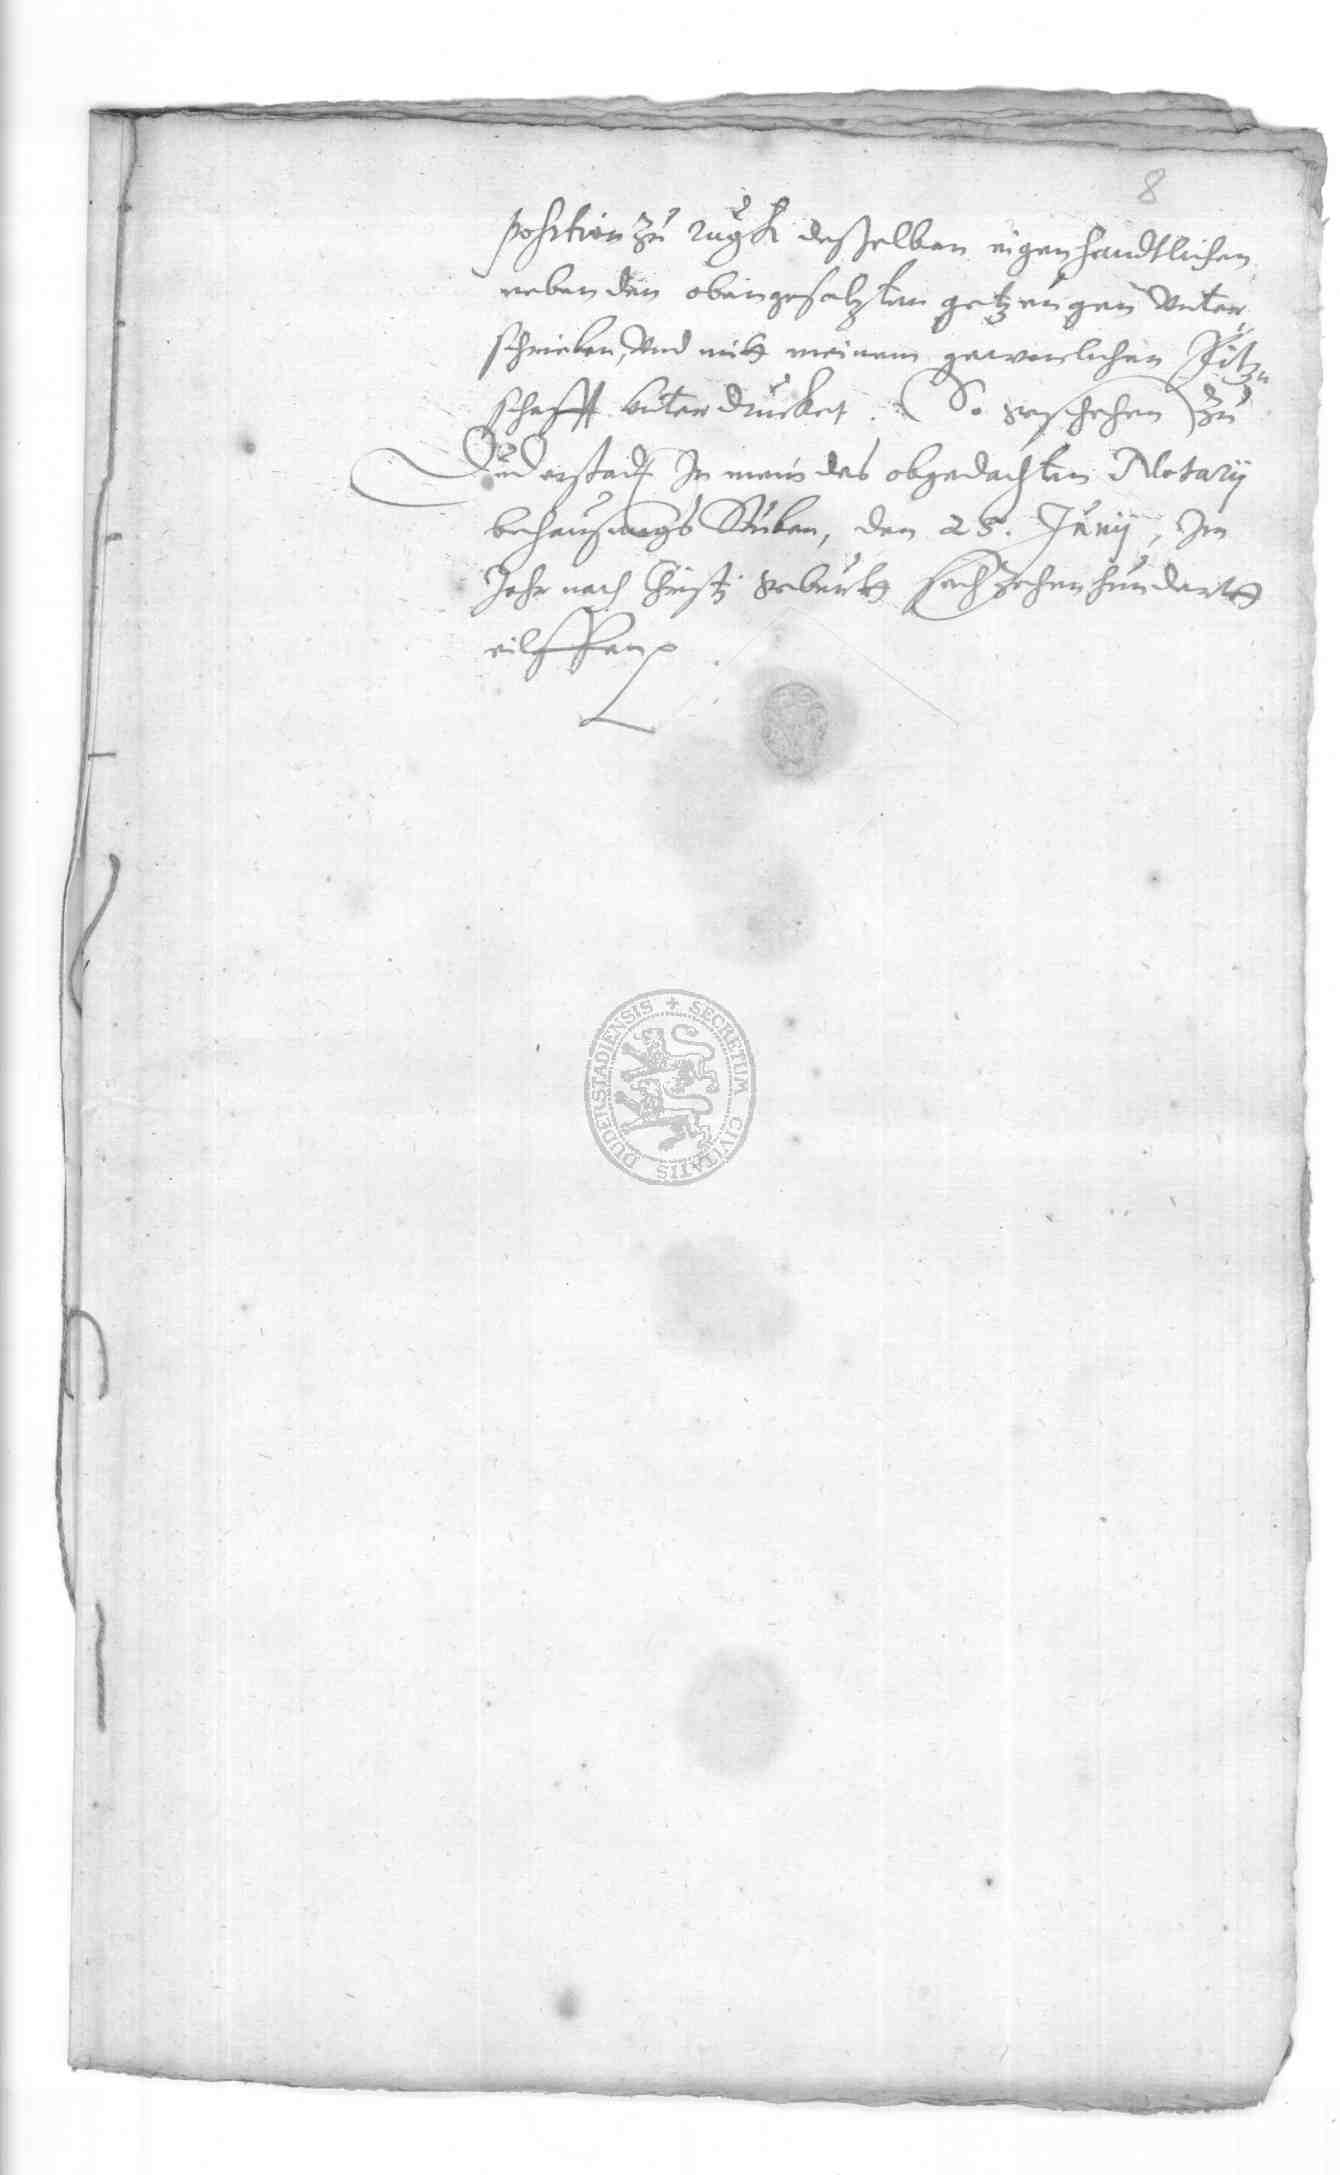 8
position zu rugk desselben eigenhandtlichen
neben den obeingesatzten getzeugen Unter
schrieben, Und mitt meinem gewonlichen Pitz„
schafft unterdrucket. So geschehen zu
Duderstadt In mein des obgedachten Notarij
behausungs Stuben, den 25. Junij, Im
Jahr nach Christi geburtt sechzehenhundertt
eilfften
DUDERSTADIENSIS + SECRETUM CIVITATIS